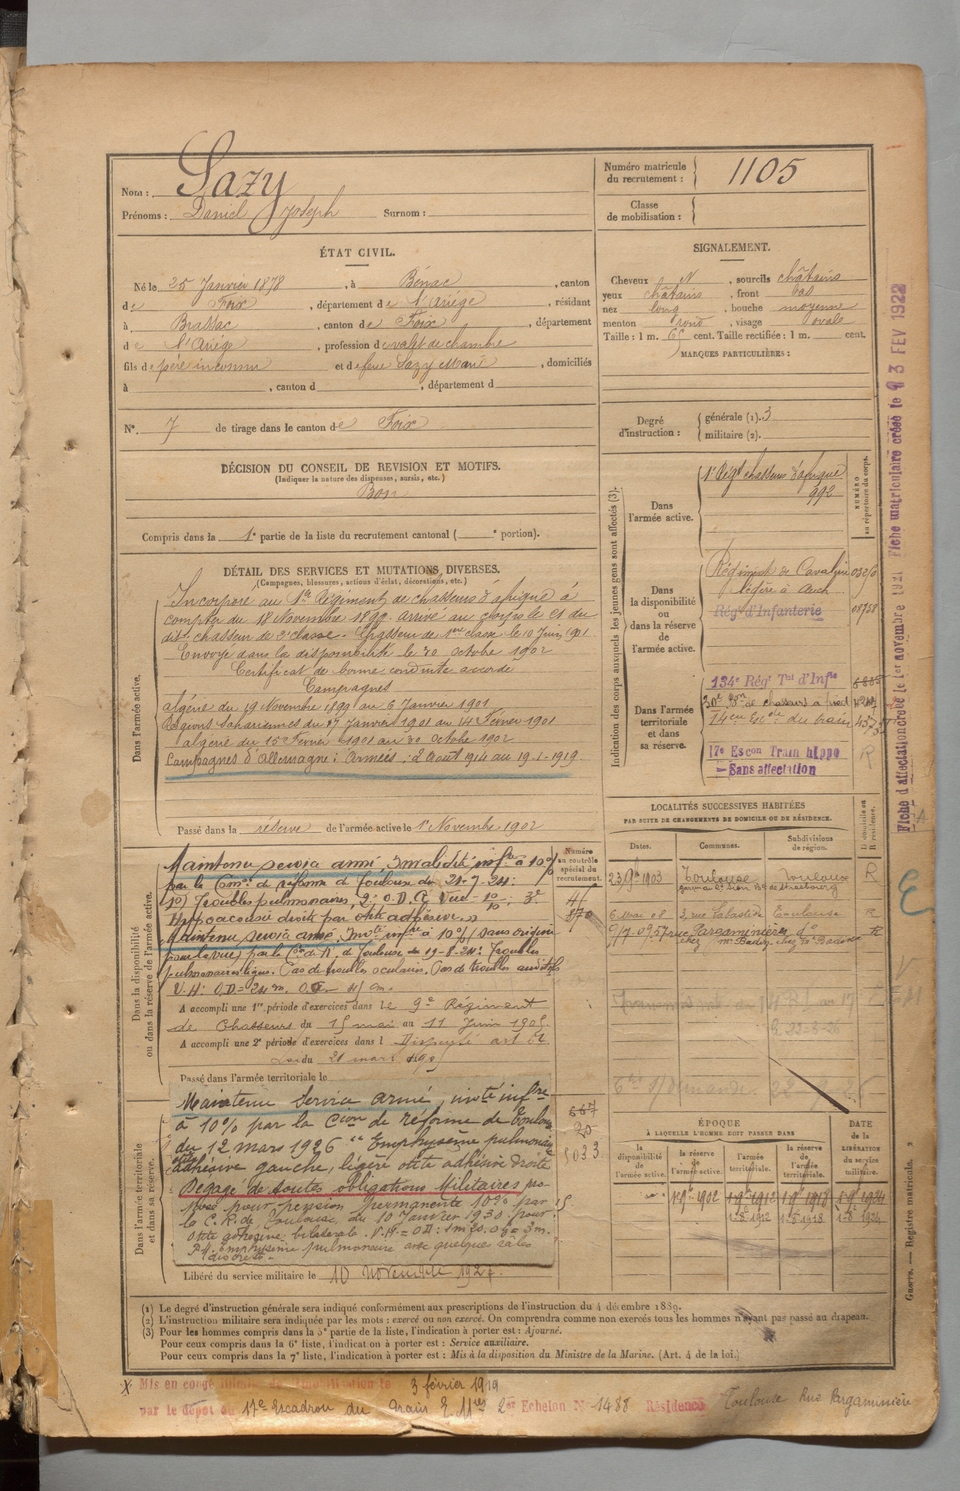 Nom : Sazy
Prénoms : Daniel Joseph Surnom :
Numéro matricule du recrutement : 1105
Classe de mobilisation :
ÉTAT CIVIL.
Né le 25 Janvier 1878, à Bénac, canton
de Foix, département de l'Ariège, résidant
à Brassac, canton de Foix, département
de l'Ariège, profession de valet de chambre
fils de père inconnu et de feue Sazy Marie, domiciliés
à , canton d , département d
N° 7 de tirage dans le canton de Foix
SIGNALEMENT.
Cheveux N., sourcils châtains
yeux châtains, front bas
nez long, bouche moyenne
menton rond, visage ovale
Taille : 1 m. 65 cent. Taille rectifiée : 1 m. cent.
MARQUES PARTICULIÈRES :
Degré d'instruction : générale (1). 3
militaire (2).
DÉCISION DU CONSEIL DE REVISION ET MOTIFS.
(Indiquer la nature des dispenses, sursis, etc.)
Bon
Compris dans la 1e partie de la liste du recrutement cantonal ( e portion).
DÉTAIL DES SERVICES ET MUTATIONS DIVERSES.
(Campagnes, blessures, actions d'éclat, décorations, etc.)
Dans l'armée active.
Incorporé au 1er Régiment de chasseurs d'afrique à
compter du 18 Novembre 1899 arrivé au corps le et du
dit chasseur de 2e classe. Chasseur de 1ère classe le 10 Juin 1901
Envoyé dans la disponibilité le 30 octobre 1902
Certificat de bonne conduite accordé
Campagnes
algérie du 19 Novembre 1899 au 6 Janvier 1901
Régions Sahariennes du 07 Janvier 1901 au 14 Février 1901
algérie du 15 Février 1901 au 30 Octobre 1902
Campagnes d'Allemagne : armées : 2 Août 1914 au 19-1-1919
Passé dans la réserve de l'armée active le 1er Novembre 1902
Indication des corps auxquels les jeunes gens sont affectés (3).
NUMÉRO au répertoire du corps.
Dans l'armée active.
1er Régt chasseurs d'afrique
992
Dans la disponibilité ou dans la réserve de l'armée active.
Régiment de Cavalerie
légère à Auch
Régt d'Infanterie
Dans l'armée territoriale et dans sa réserve.
134e Rég Tal d'Infie
de chasseurs à pied
17e Escon Train hippo
— Sans affectation
R
LOCALITÉS SUCCESSIVES HABITÉES
PAR SUITE DE CHANGEMENTS DE DOMICILE OU DE RÉSIDENCE.
Dates. Communes. Subdivisions de région. D domicile ou R résidence.
Toulouse Toulouse R
6 Mai 08 3, rue Labastide Toulouse R
rue Pargaminières do R
Dans la disponibilité ou dans la réserve de l'armée active.
Numéro au contrôle spécial du recrutement.
Maintenu service armé, Invalidité infre à 10%
par la Comon de réforme de Toulouse du 21-7-21 :
1o) Troubles pulmonaires, 2o O.D.G Vue
Hypoacousie droite par otite adhésive »
Maintenu service armé. Invté infre à 10% (sans origine
pour la vue) par la Con de R. de Toulouse
Pas de troubles oculaires. Pas de troubles auditifs
A accompli une 1re période d'exercices dans le 9e Régiment
de Chasseurs du 15 mai au 11 Juin 1905
A accompli une 2e période d'exercices dans l Dispensé art
Loi du 21 mars 1905
Passé dans l'armée territoriale le
Dans l'armée territoriale et dans sa réserve.
Maintenu Service armé, invté infre
à 10% par la Cion de réforme de Toulouse
du 12 mars 1926 "Emphysème pulmonaire
adhésive gauche, légère otite adhésive droite
Dégagé de toutes obligations Militaires pro-
posé pour pension permanente 10% par
la C.R. de Toulouse, du 10 Janvier 1930 pour
Otite adhésive bilatérale.
emphysème pulmonaire avec quelques râles
discrets.
Libéré du service militaire le 10 novembre
ÉPOQUE
À LAQUELLE L'HOMME DOIT PASSER DANS
la disponibilité de l'armée active. la réserve de l'armée active. l'armée territoriale. la réserve de l'armée territoriale.
DATE de la LIBÉRATION du service militaire.
1er 9bre 1902
(1) Le degré d'instruction générale sera indiqué conformément aux prescriptions de l'instruction du 4 décembre 1889.
(2) L'instruction militaire sera indiquée par les mots : exercé ou non exercé. On comprendra comme non exercés tous les hommes n'ayant pas passé au drapeau.
(3) Pour les hommes compris dans la 5e partie de la liste, l'indication à porter est : Ajourné.
Pour ceux compris dans la 6e liste, l'indication à porter est : Service auxiliaire.
Pour ceux compris dans la 7e liste, l'indication à porter est : Mis à la disposition du Ministre de la Marine. (Art. 4 de la loi.)
Guerre. — Registre matricule. 2
Fiche d'affectation créée le 1er novembre 1921 Fiche matriculaire créée le 3 FEV 1922
Mis en congé illimité de démobilisation le 3 février 1919
par le dépôt du 17e Escadron du Train 2e Echelon No 1488 Résidence Toulouse Rue Pargaminière